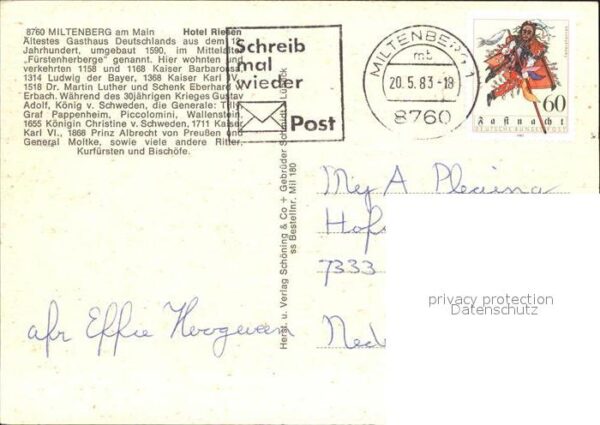 8760 MILTENBERG am Main Hotel Riesen
Ältestes Gasthaus Deutschlands aus dem 12.
Jahrhundert, umgebaut 1590, im Mittelalter
„Fürstenherberge" genannt. Hier wohnten und
verkehrten 1158 und 1168 Kaiser Barbarossa,
1314 Ludwig der Bayer, 1368 Kaiser Karl IV.,
1518 Dr. Martin Luther und Schenk Eberhard v.
Erbach. Während des 30jährigen Krieges Gustav
Adolf, König v. Schweden, die Generale: Tilly,
Graf Pappenheim, Piccolomini, Wallenstein.
1655 Königin Christine v. Schweden, 1711 Kaiser
Karl VI., 1868 Prinz Albrecht von Preußen und
General Moltke, sowie viele andere Ritter,
Kurfürsten und Bischöfe.
Schreib
mal
wieder
Post
MILTENBERG 1
mb
20.5.83-18
8760
60
Fastnacht
DEUTSCHE BUNDESPOST
Herst. u. Verlag Schöning & Co + Gebrüder Schmidt, Lübeck
ss Bestellnr. Mil 180
Mej A
Hof
7333
Ned
afz Effie Hoogeveen
privacy protection
Datenschutz